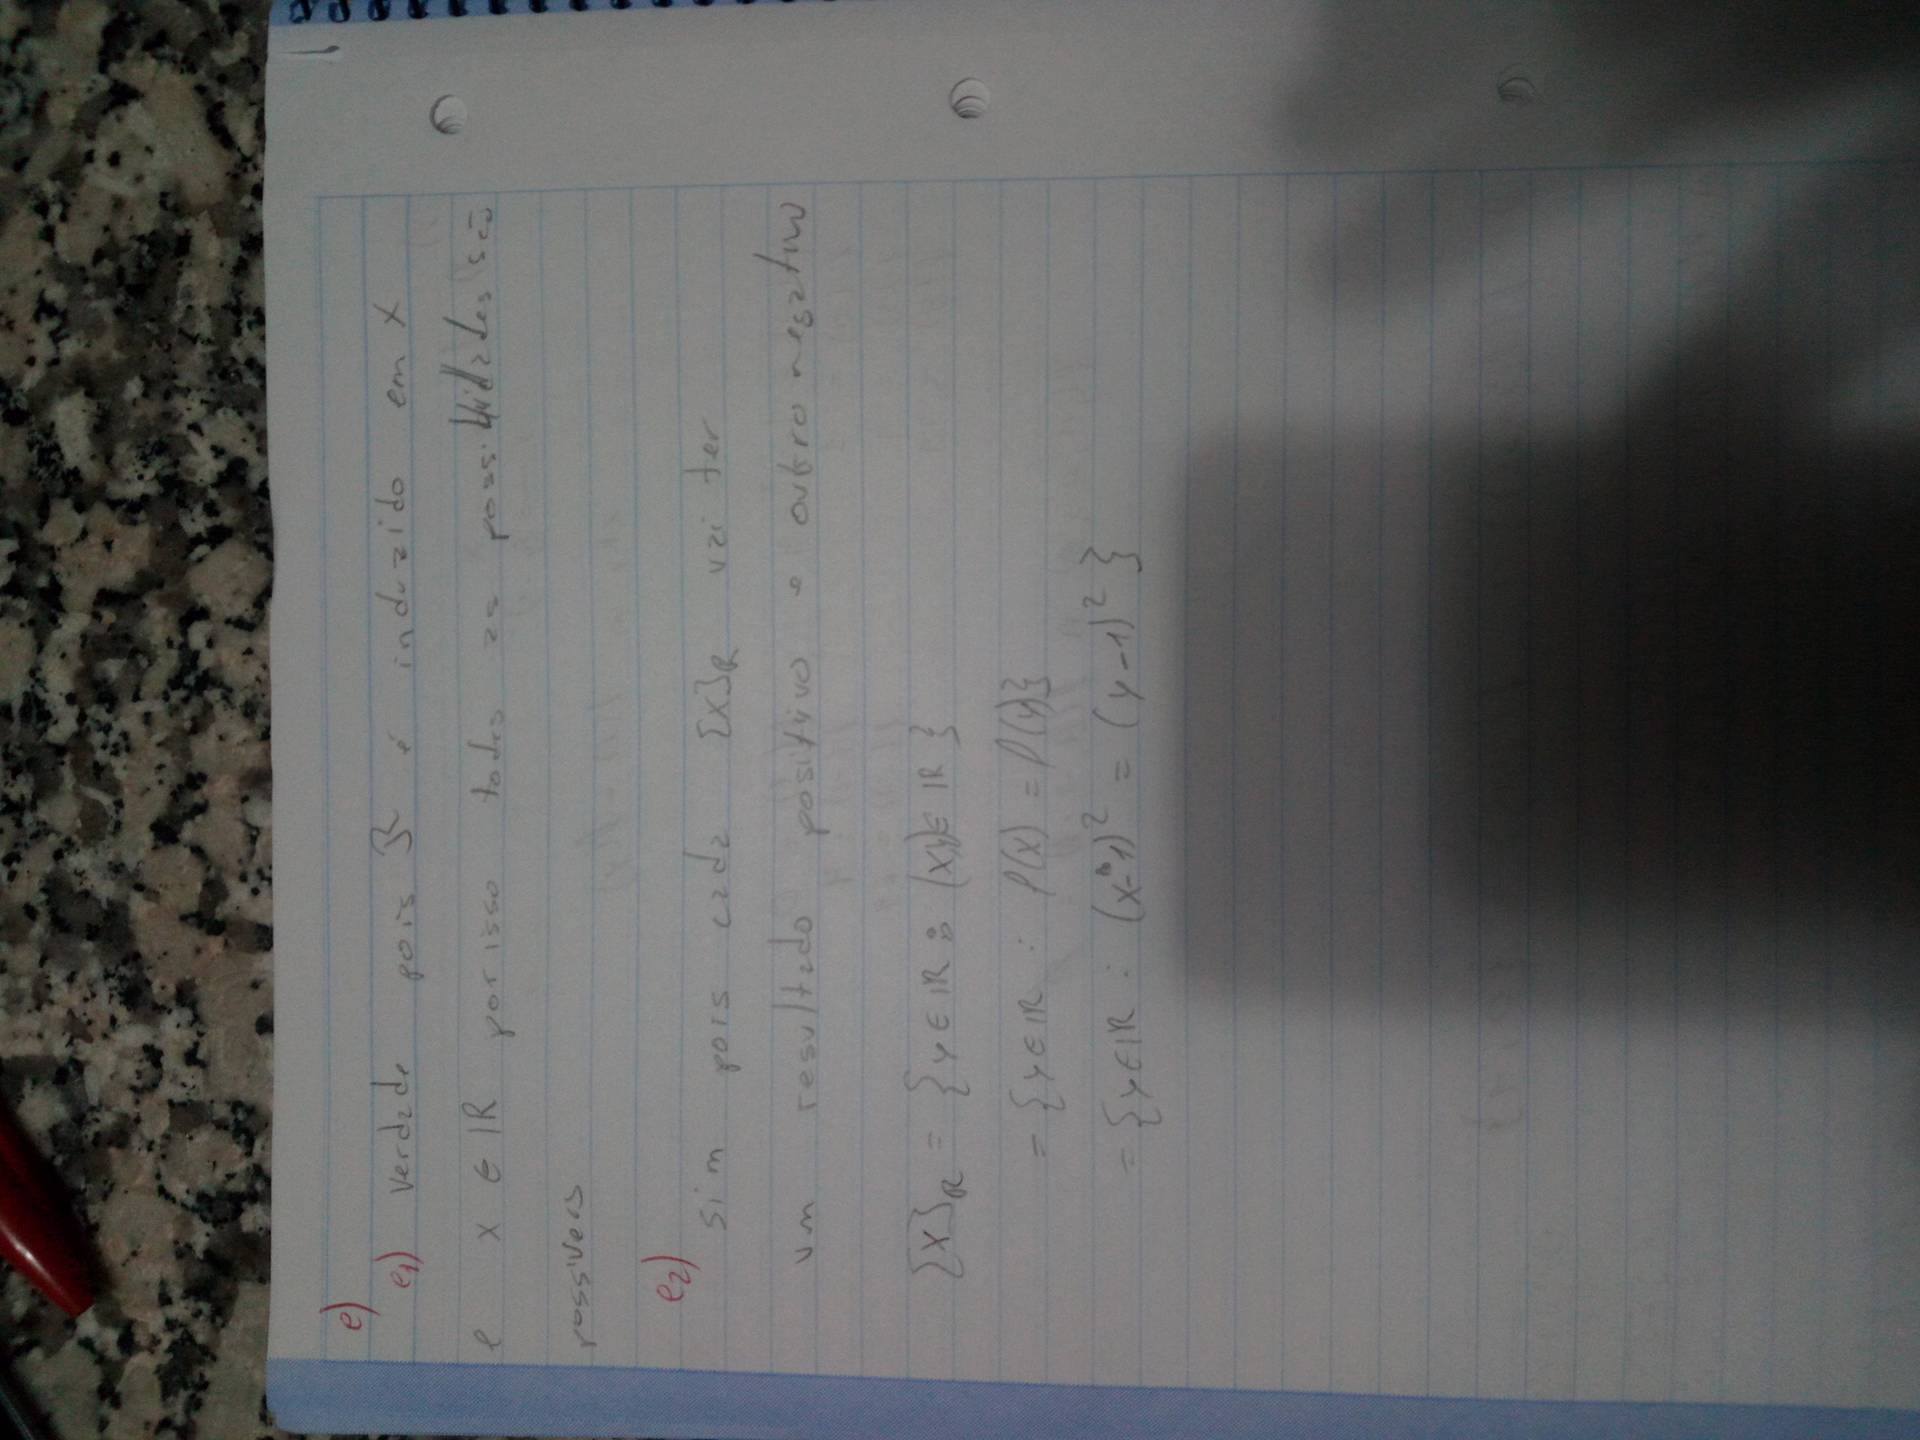 e)
e1) verdade pois R é induzido em X
e x ∈ ℝ por isso todas as possibilidades são
possiveis
e2)
sim pois cada [x]R vai ter
um resultado positivo e outro negativo
[x]R = {y ∈ ℝ : (x,y) ∈ ℝ}
= {y ∈ ℝ : f(x) = f(y)}
= {y ∈ ℝ : (x-1)² = (y-1)²}